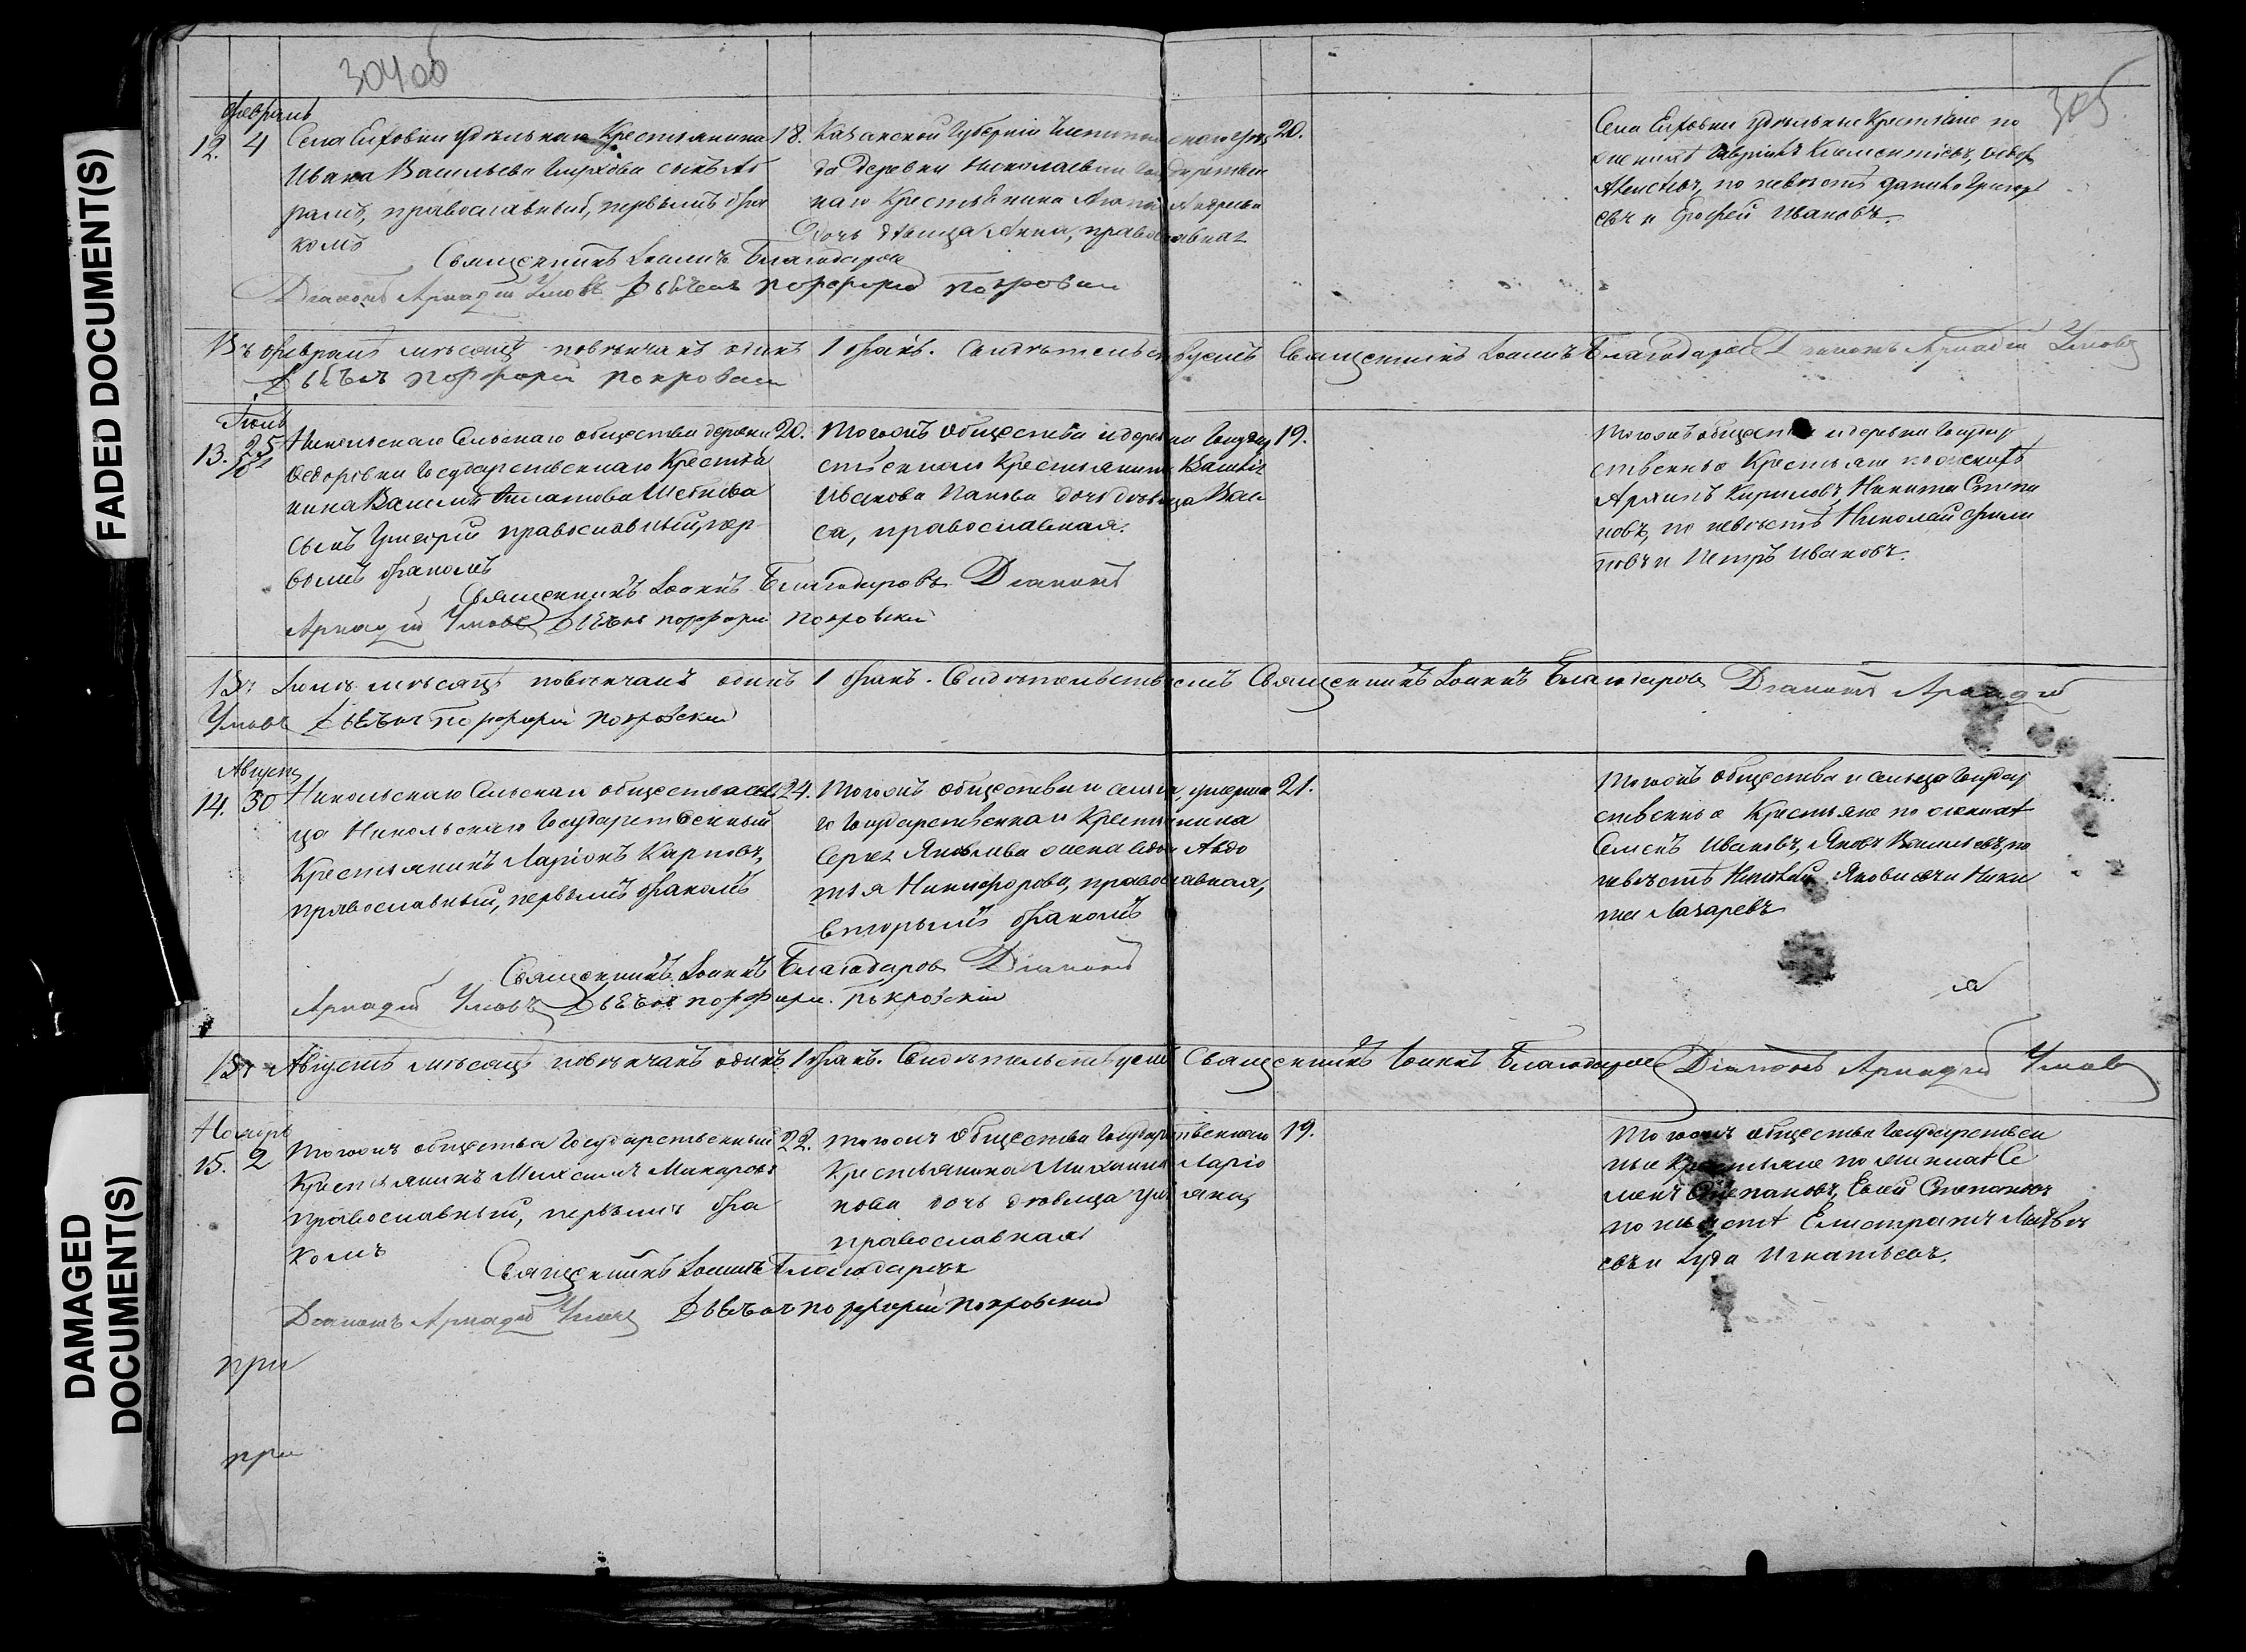 FADED DOCUMENT(S)
DAMAGED DOCUMENT(S)
304об
305
Февраль
12. 4
Села Елховки удѣльнаго Крестьянина
Ивана Васильева сынъ Аб
рамъ, православный, первымъ бра
комъ
18.
Казанской Губерніи Чистопольскаго уѣз
да деревни Николаевки Государствен
наго Крестьянина Андреева
дочь дѣвица Анна, православная
20.
Села Елховки удѣльные Крестьяне по
женихѣ Гавріилъ Климентьевъ, Ѳедоръ
Алексѣевъ, по невѣстѣ Данило Григорь
евъ и Ерофей Ивановъ.
Священникъ Іоаннъ Благодаровъ
Діаконъ Аркадій Умовъ Дьячекъ Порфирій Покровскій
Въ Февралѣ мѣсяцѣ повѣнчанъ одинъ 1 бракъ. Свидѣтельствуемъ Священникъ Іоаннъ Благодаровъ Діаконъ Аркадій Умовъ
Дьячекъ Порфирій Покровскій
Іюль
13. 25
Никольскаго Сельскаго общества деревни
Ѳедоровки Государственнаго Крестья
нина Василія
сынъ Григорій православный, пер
вымъ бракомъ
20.
Тогожъ общества и деревни Государ
ственнаго Крестьянина Василія
Иванова Панова дочь дѣвица Вас
са, православная.
19.
Тогожъ общества и деревни Государ
ственные Крестьяне по женихѣ
Кириловъ, Никита Степа
новъ, по невѣстѣ Николай Фили
повъ и Петръ Ивановъ.
Священникъ Іоаннъ Благодаровъ Діаконъ
Аркадій Умовъ Дьячекъ Порфирій Покровскій
Въ Іюлѣ мѣсяцѣ повѣнчанъ одинъ 1 бракъ. Свидѣтельствуемъ Священникъ Іоаннъ Благодаровъ Діаконъ Аркадій
Умовъ Дьячекъ Порфирій Покровскій
Августъ
14. 30
Никольскаго Сельскаго общества сель
ца Никольскаго Государственный
Крестьянинъ Ларіонъ Карповъ,
православный, первымъ бракомъ
24.
Тогожъ общества и сельца умерша
го Государственнаго Крестьянина
Сергея Яковлева жена вдова Авдо
тья Никифорова, православная,
вторымъ бракомъ
21.
Тогожъ общества и сельца Государ
ственные Крестьяне по женихѣ
Семенъ Ивановъ, Яковъ Васильевъ, по
невѣстѣ Николай Яковлевъ и Ники
та Лазаревъ
Священникъ Іоаннъ Благодаровъ Діаконъ
Аркадій Умовъ Дьячекъ Порфирій Покровскій
Въ Августѣ мѣсяцѣ повѣнчанъ одинъ 1 бракъ. Свидѣтельствуемъ Священникъ Іоаннъ Благодаровъ Діаконъ Аркадій Умовъ
Ноябрь
15. 2
Тогожъ общества Государственный
Крестьянинъ Михаилъ Макаровъ
православный, первымъ бра
комъ
22.
Тогожъ общества Государственнаго
Крестьянина Михаила Ларіо
нова дочь дѣвица Ульяна,
православная
19.
Тогожъ общества Государствен
ные Крестьяне по женихѣ Се
менъ Степановъ, Евсей Степановъ
по невѣстѣ Елистратъ Матвѣ
евъ и Іуда Игнатьевъ.
Священникъ Іоаннъ Благодаровъ
Діаконъ Аркадій Умовъ Дьячекъ Порфирій Покровскій
при
при